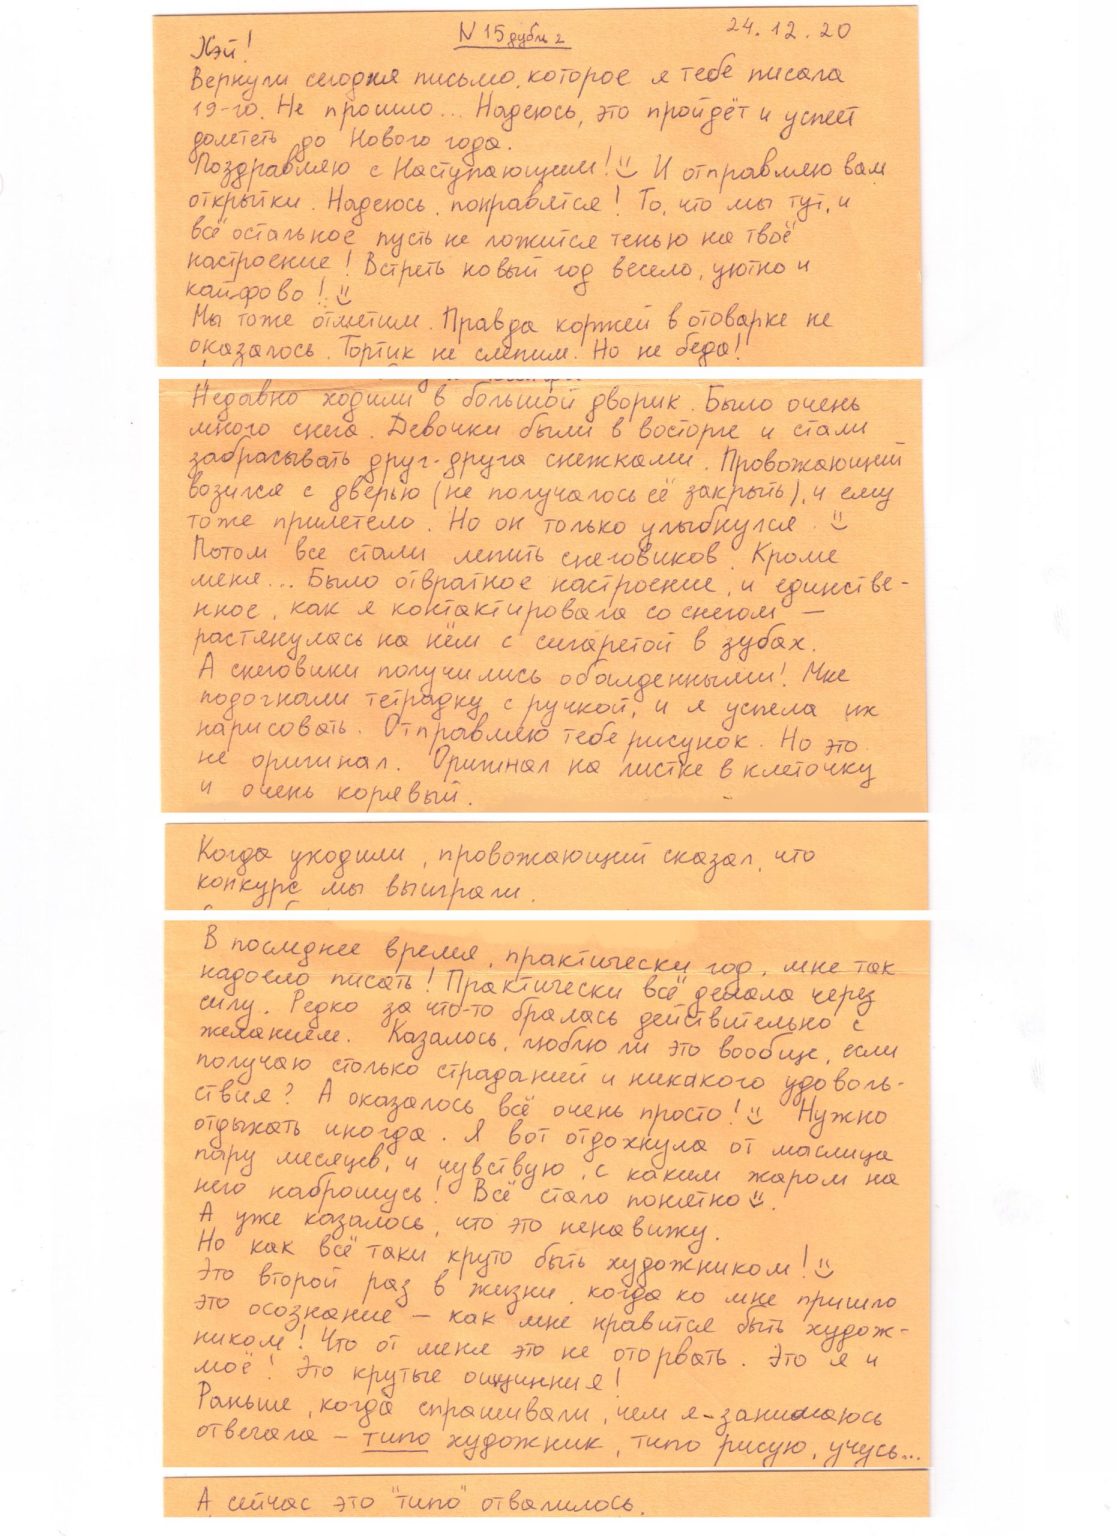 N 15 дубль 2
24.12.20
Хэй!
Вернули сегодня письмо, которое я тебе писала
19-го. Не прошло... Надеюсь, это пройдёт и успеет
долететь до Нового года.
Поздравляю с Наступающим! И отправляю вам
открытки. Надеюсь, понравятся! То, что мы тут, и
всё остальное пусть не ложится тенью на твоё
настроение! Встреть новый год весело, уютно и
кайфово!
Мы тоже отметим. Правда коржей в отоварке не
оказалось. Тортик не слепим. Но не беда!
Недавно ходили в большой дворик. Было очень
много снега. Девочки были в восторге и стали
забрасывать друг-друга снежками. Провожающий
возился с дверью (не получалось её закрыть), и ему
тоже прилетело. Но он только улыбнулся.
Потом все стали лепить снеговиков. Кроме
меня... Было отвратное настроение, и единстве-
нное, как я контактировала со снегом —
растянулась на нём с сигаретой в зубах.
А снеговики получились обалденными! Мне
подогнали тетрадку с ручкой, и я успела их
нарисовать. Отправляю тебе рисунок. Но это
не оригинал. Оригинал на листке в клеточку
и очень корявый.
Когда уходили, провожающий сказал, что
конкурс мы выиграли.
В последнее время, практически год, мне так
надоело писать! Практически всё делала через
силу. Редко за что-то бралась действительно с
желанием. Казалось, люблю ли это вообще, если
получаю столько страданий и никакого удоволь-
ствия? А оказалось всё очень просто! Нужно
отдыхать иногда. Я вот отдохнула от маслица
пару месяцев, и чувствую, с каким жаром на
него наброшусь! Всё стало понятно.
А уже казалось, что это ненавижу.
Но как всё таки круто быть художником!
Это второй раз в жизни, когда ко мне пришло
это осознание — как мне нравится быть худож-
ником! Что от меня это не оторвать. Это я и
моё! Это крутые ощущения!
Раньше, когда спрашивали, чем я занимаюсь
отвечала – типо художник, типо рисую, учусь...
А сейчас это "типо" отвалилось.